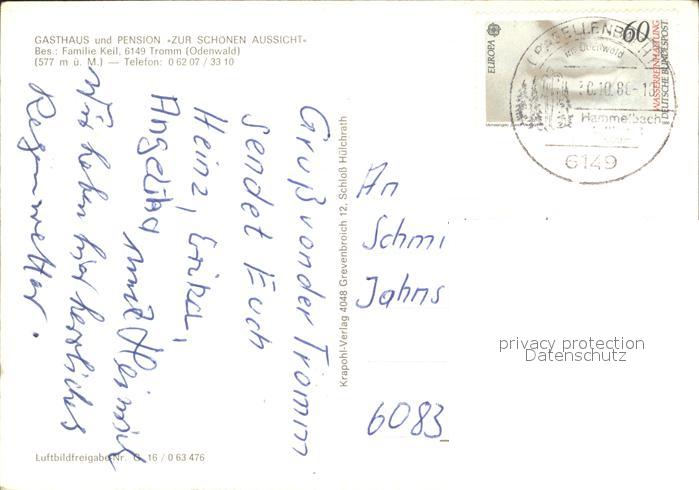 GASTHAUS und PENSION »ZUR SCHÖNEN AUSSICHT«
Bes.: Familie Keil, 6149 Tromm (Odenwald)
(577 m ü. M.) — Telefon: 0 62 07 / 33 10
Gruß von der Tromm
sendet Euch
Heinz, Erika,
Angelika
mit Heinrich
Wir haben hier herrliches
Regenwetter.
Luftbildfreigabe Nr. G 16 / 0 63 476
Krapohl-Verlag 4048 Grevenbroich 12, Schloß Hülchrath
An
Schmi
Jahns
6083
EUROPA
60
WASSERREINHALTUNG
DEUTSCHE BUNDESPOST
im Odenwald
Hammelbach
6149
privacy protection
Datenschutz